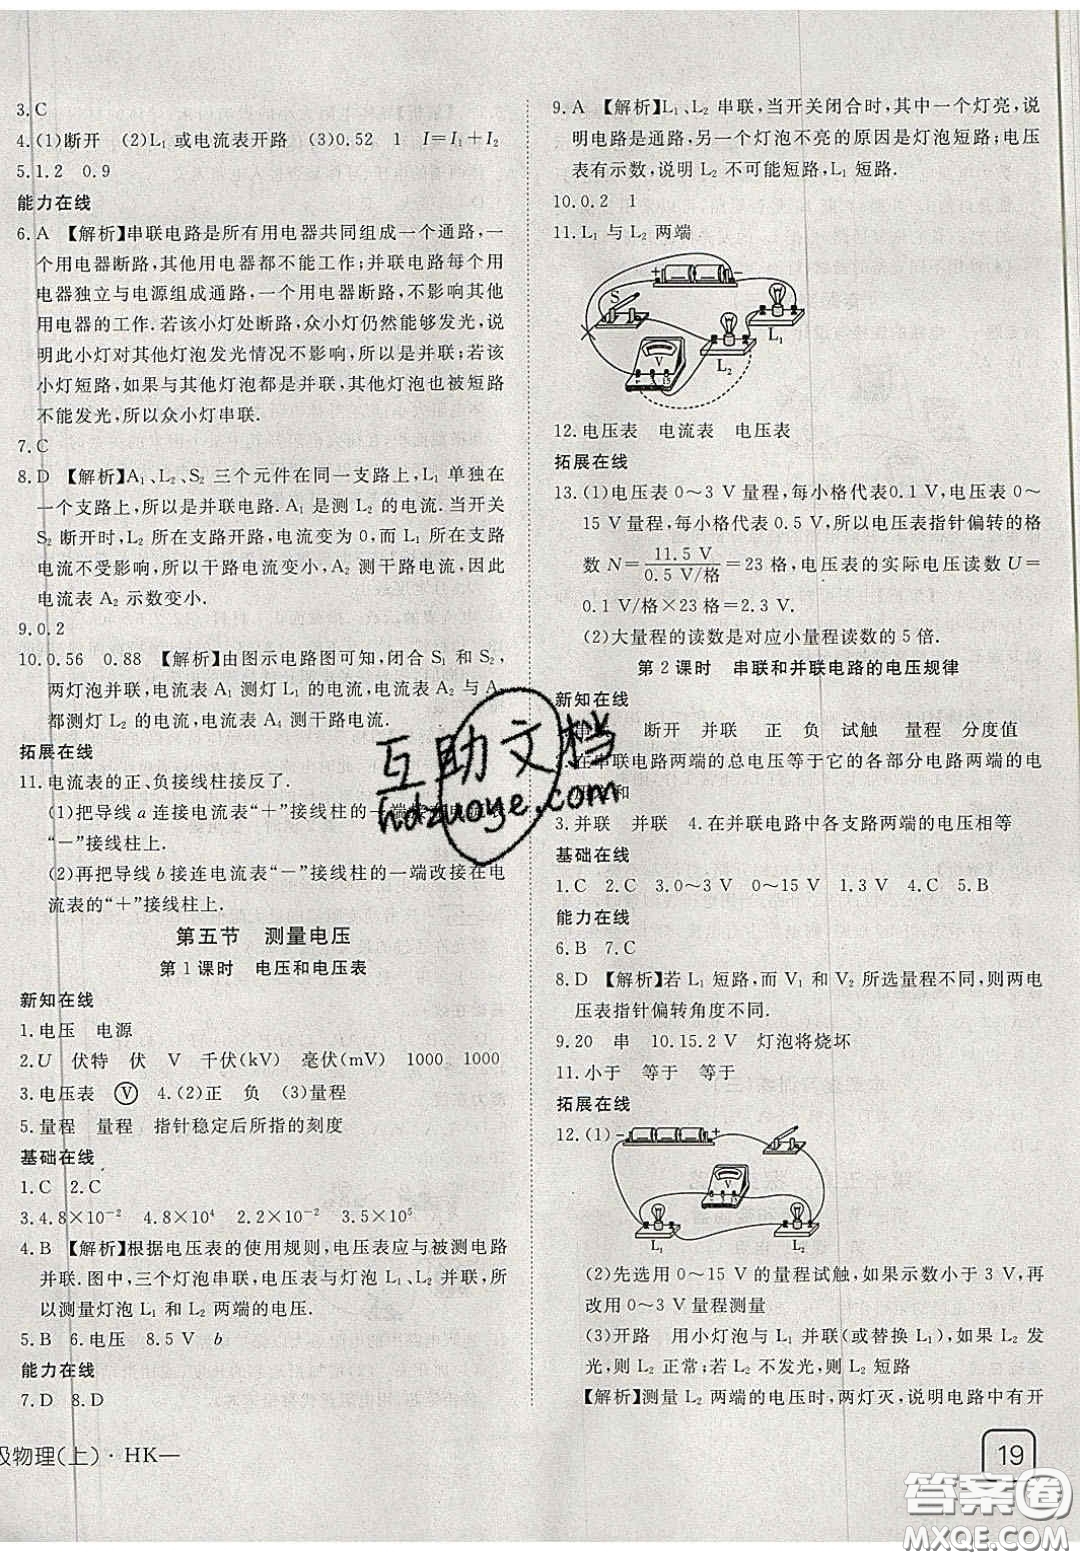 3.C
4.(1)断开 (2)L₁ 或电流表开路 (3)0.52 1 I=I₁+I₂
5.1.2 0.9
能力在线
6.A 【解析】串联电路是所有用电器共同组成一个通路，一
个用电器断路，其他用电器都不能工作；并联电路每个用
电器独立与电源组成通路，一个用电器断路，不影响其他
用电器的工作.若该小灯处断路，众小灯仍然能够发光，说
明此小灯对其他灯泡发光情况不影响，所以是并联；若该
小灯短路，如果与其他灯泡都是并联，其他灯泡也被短路
不能发光，所以众小灯串联.
7.C
8.D 【解析】A₁、L₂、S₂ 三个元件在同一支路上，L₁ 单独在
一个支路上，所以是并联电路.A₁ 是测 L₂ 的电流.当开关
S₂ 断开时，L₂ 所在支路开路，电流变为 0，而 L₁ 所在支路
电流不受影响，所以干路电流变小，A₂ 测干路电流，因此
电流表 A₂ 示数变小.
9.0.2
10.0.56 0.88 【解析】由图示电路图可知，闭合 S₁ 和 S₂，
两灯泡并联，电流表 A₁ 测灯 L₁ 的电流，电流表 A₂ 与 A
都测灯 L₂ 的电流，电流表 A₁ 测干路电流.
拓展在线
11.电流表的正、负接线柱接反了.
(1)把导线 a 连接电流表“＋”接线柱的一端接在电流表
“－”接线柱上.
(2)再把导线 b 接连电流表“－”接线柱的一端改接在电
流表的“＋”接线柱上.
第五节 测量电压
第 1 课时 电压和电压表
新知在线
1.电压 电源
2.U 伏特 伏 V 千伏(kV) 毫伏(mV) 1000 1000
3.电压表 Ⓥ 4.(2)正 负 (3)量程
5.量程 量程 指针稳定后所指的刻度
基础在线
1.C 2.C
3.4.8×10⁻² 4.8×10⁴ 2.2×10⁻² 3.5×10⁵
4.B 【解析】根据电压表的使用规则，电压表应与被测电路
并联.图中，三个灯泡串联，电压表与灯泡 L₁ 并联，所
以测量灯泡 L₁ 和 L₂ 两端的电压.
5.B 6.电压 8.5 V b
能力在线
7.D 8.D
级物理(上)·HK—
9.A 【解析】L₁、L₂ 串联，当开关闭合时，其中一个灯亮，说
明电路是通路，另一个灯泡不亮的原因是灯泡短路；电压
表有示数，说明 L₂ 不可能短路，L₁ 短路.
10.0.2 1
11.L₁ 与 L₂ 两端
－ ＋
S
V
L₁
L₂
12.电压表 电流表 电压表
拓展在线
13.(1)电压表 0～3 V 量程，每小格代表0.1 V，电压表 0～
15 V 量程，每小格代表 0.5 V，所以电压表指针偏转的格
数 N=11.5 V/0.5 V/格=23 格，电压表的实际电压读数 U=
0.1 V/格×23 格=2.3 V.
(2)大量程的读数是对应小量程读数的 5 倍.
第 2 课时 串联和并联电路的电压规律
新知在线
断开 并联 正 负 试触 量程 分度值
在串联电路两端的总电压等于它的各部分电路两端的电
和
3.并联 并联 4.在并联电路中各支路两端的电压相等
基础在线
1.C 2.C 3.0～3 V 0～15 V 1.3 V 4.C 5.B
能力在线
6.B 7.C
8.D 【解析】若 L₁ 短路，而 V₁ 和 V₂ 所选量程不同，则两电
压表指针偏转角度不同.
9.20 串 10.15.2 V 灯泡将烧坏
11.小于 等于 等于
拓展在线
12.(1)
－ ＋
V
L₁ L₂
(2)先选用 0～15 V 的量程试触，如果示数小于 3 V，再
改用 0～3 V 量程测量
(3)开路 用小灯泡与 L₁ 并联(或替换 L₁)，如果 L₂ 发
光，则 L₂ 正常；若 L₂ 不发光，则 L₂ 短路
【解析】测量 L₂ 两端的电压时，两灯灭，说明电路中有开
19
互助文档
hdzuoye.com
答案圈
MXQE.COM